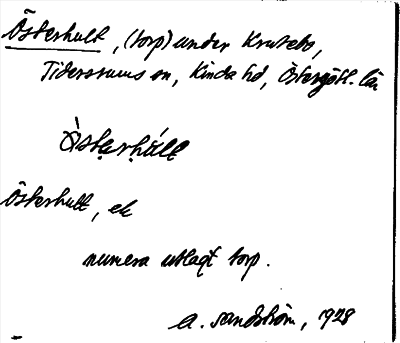 Österhult, (torp) under Krutebo,
Tidersrums sn, Kinda hd, Östergötl. län
Ö̀stẹrhúlt
Österhult, ek
numera utlagt torp.
A. Sandström, 1928